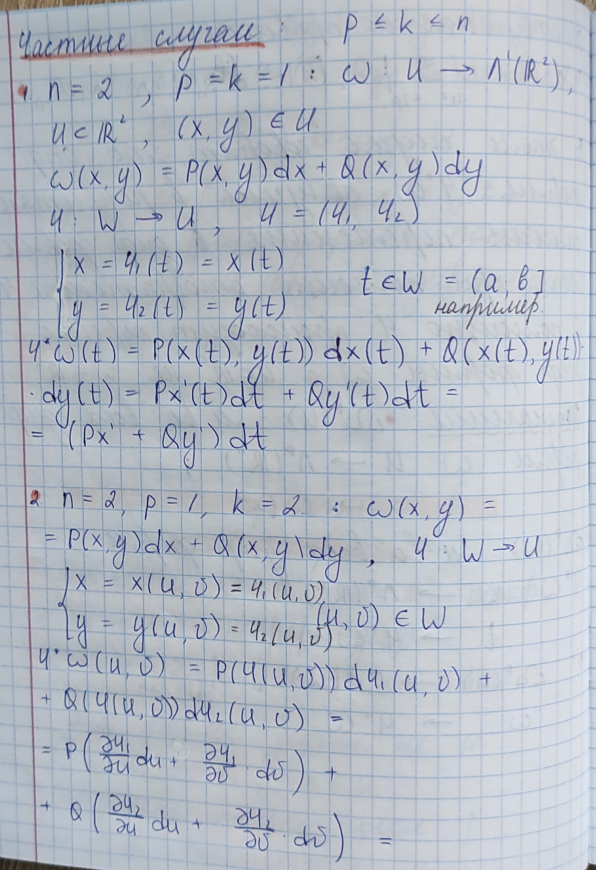 Частные случаи : p ≤ k ≤ n
1 n = 2 , p = k = 1 : ω : U → Λ¹(ℝ²),
U ⊂ ℝ² , (x, y) ∈ U
ω(x, y) = P(x, y)dx + Q(x, y)dy
φ : W → U , φ = (φ₁, φ₂)
{ x = φ₁(t) = x(t)
t ∈ W = (a, b]
{ y = φ₂(t) = y(t)
например
φ*ω(t) = P(x(t), y(t)) dx(t) + Q(x(t), y(t))·
· dy(t) = Px'(t)dt + Qy'(t)dt =
= (Px' + Qy')dt
2 n = 2, p = 1, k = 2 : ω(x, y) =
= P(x, y)dx + Q(x, y)dy , φ : W → U
{ x = x(u, v) = φ₁(u, v)
{ y = y(u, v) = φ₂(u, v) (u, v) ∈ W
φ*ω(u, v) = P(φ(u, v))dφ₁(u, v) +
+ Q(φ(u, v))dφ₂(u, v) =
= P(∂φ₁/∂u du + ∂φ₁/∂v · dv) +
+ Q(∂φ₂/∂u du + ∂φ₂/∂v · dv) =